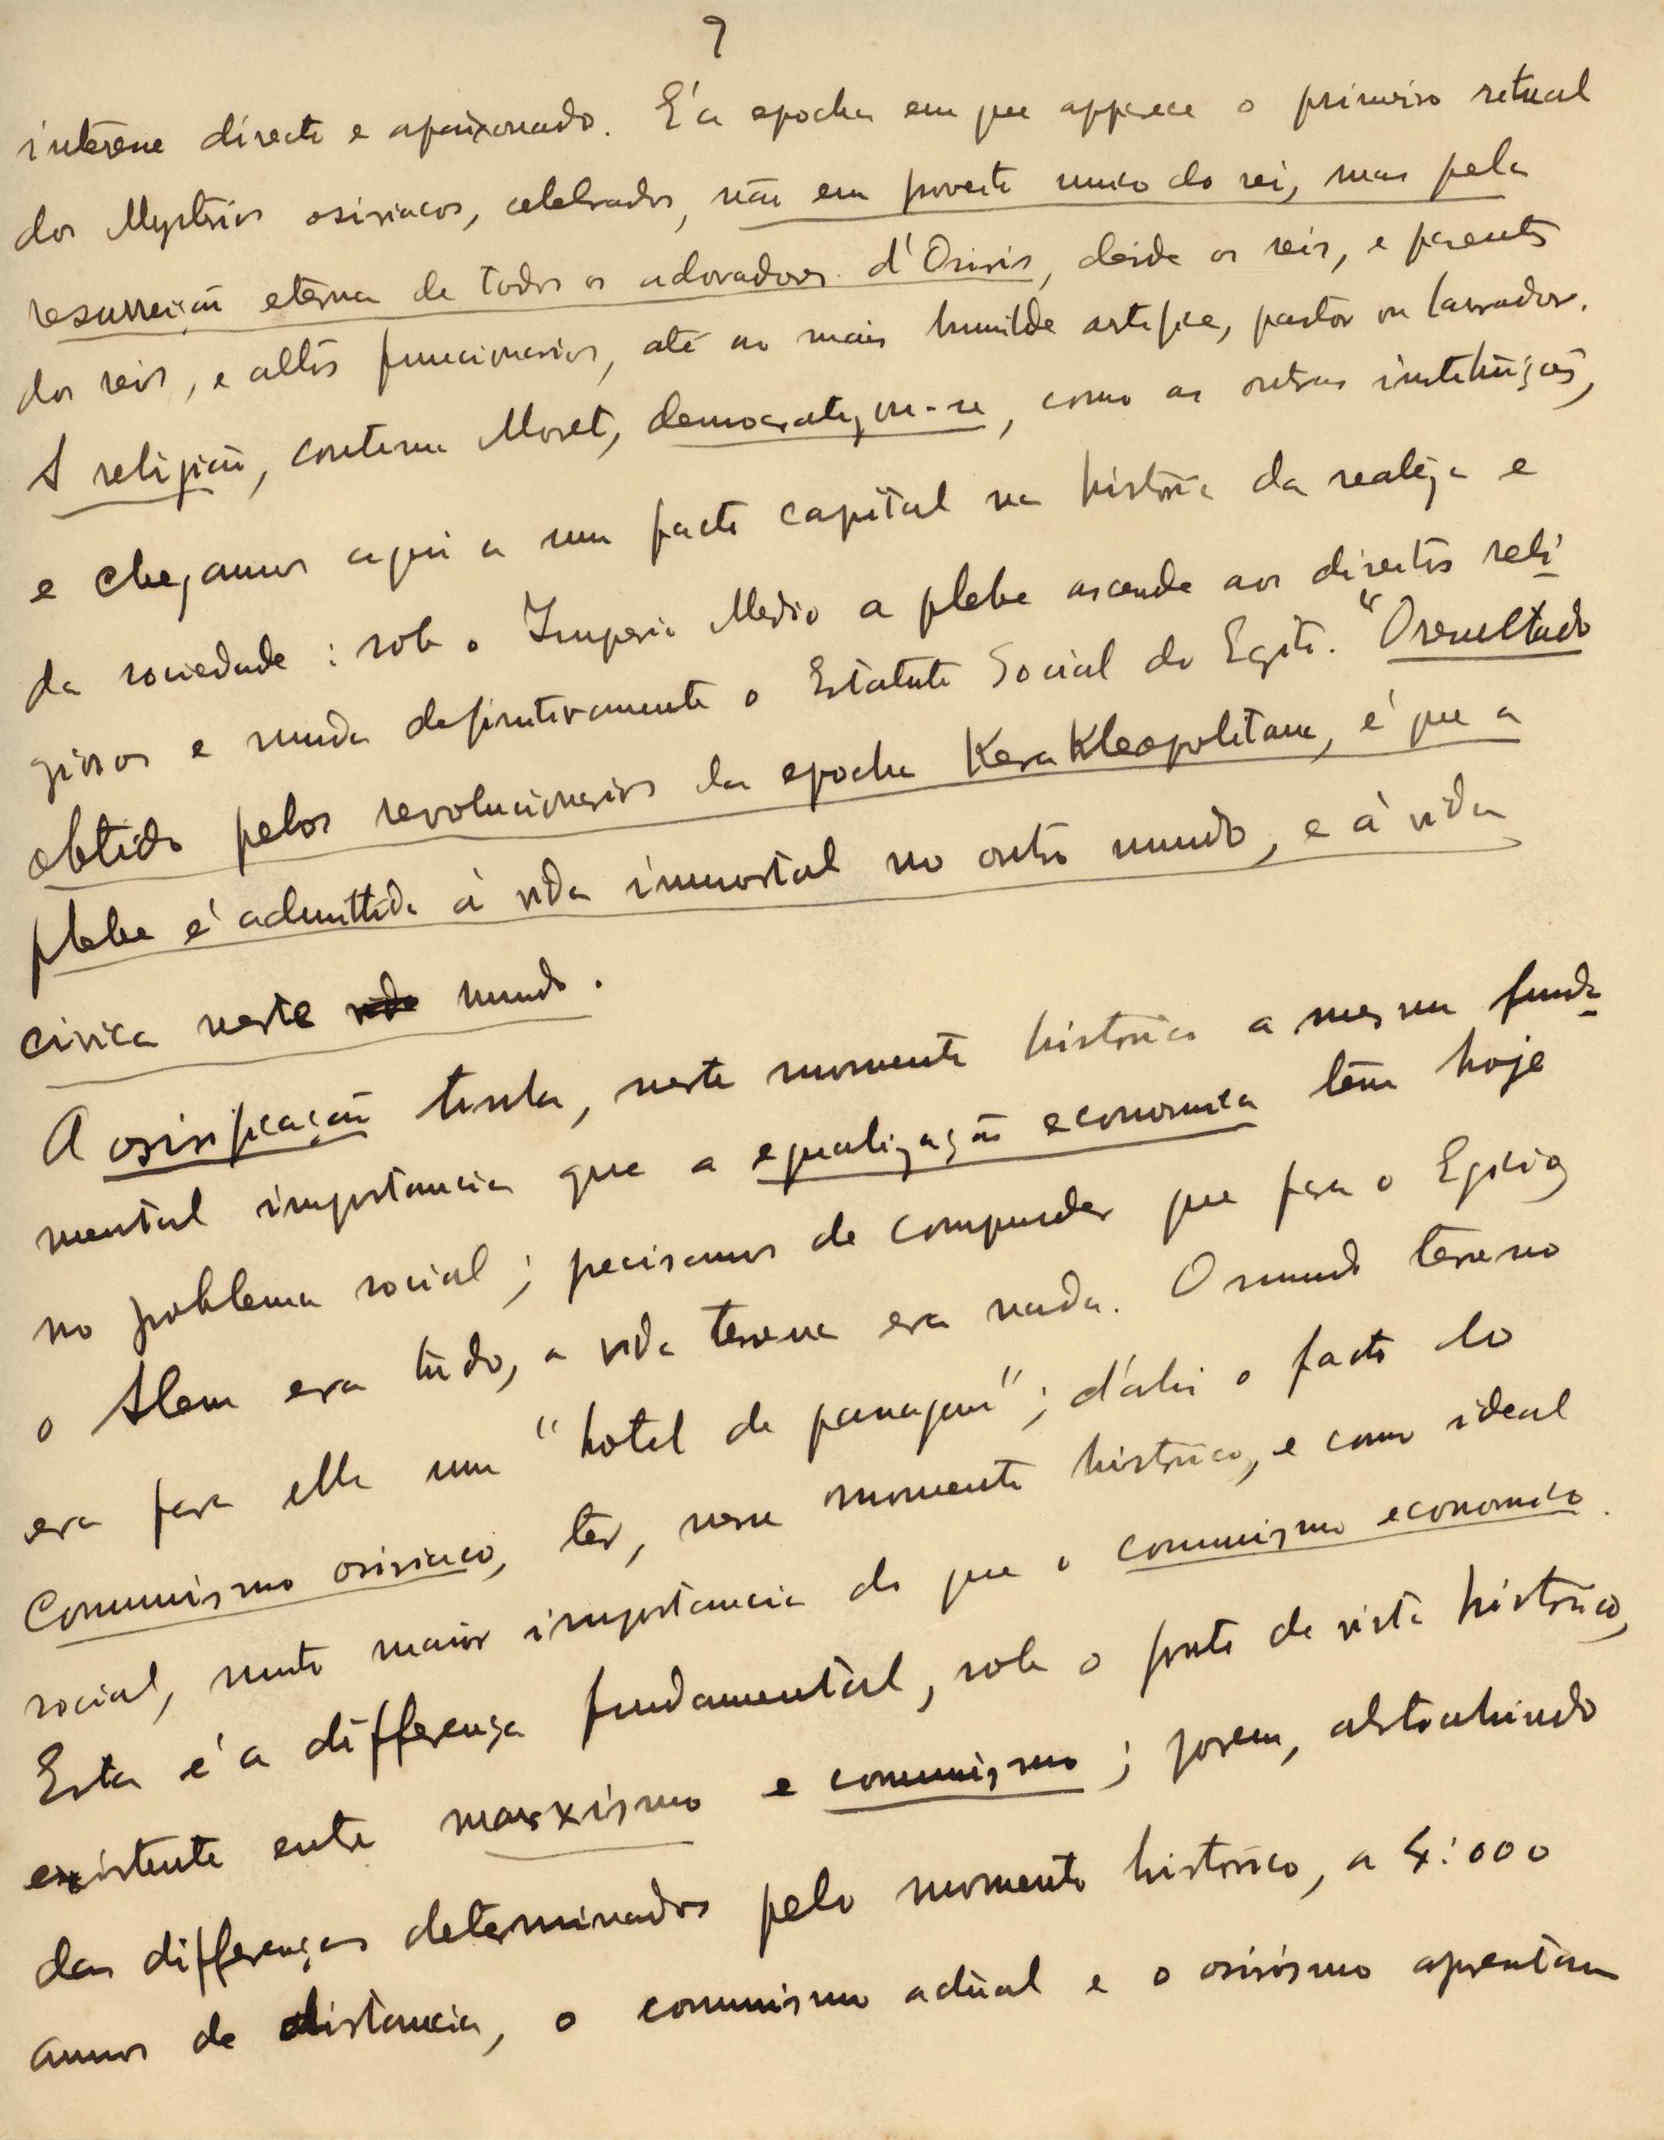 7
interesse directo e apaixonado. E'a epocha em que apparece o primeiro ritual
dos Mysterios osiriacos, celebrados, não em proveito unico do rei, mas pela
resurreição eterna de todos os adoradores d'Osiris, desde os reis, e parentes
dos reis, e altos funcionarios, até ao mais humilde artifice, pastor ou lavrador.
A religião, continua Moret, democratizou-se, como as outras instituições,
e chegamos aqui a um facto capital na historia da realeza e
da sociedade: sob o Imperio Medio a plebe ascende aos direitos reli-
giosos e muda definitivamente o Estatuto Social do Egito. "O resultado
obtido pelos revolucionarios da epocha Kerakleopolitana, é que a
plebe é admittida á vida immortal no outro mundo, e á vida
civica neste mundo.
A osirificação tinha, neste momento historico a mesma funda-
mental importancia que a egualização economica têm hoje
no problema social; precisamos de comprender que para o Egipcio
o Alem era tudo, a vida terrena era nada. O mundo terreno
era para elle um "hotel de passagem"; d'ahi o facto do
Communismo osiriaco, ter, nesse momento historico, e como ideal
social, muito maior importancia do que o communismo economico.
Esta é a differença fundamental, sob o ponto de vista historico,
existente entre marxismo e communismo; porem, abstrahindo
das differenças determinadas pelo momento historico, a 4:000
annos de distancia, o communismo actual e o osirismo apresentam